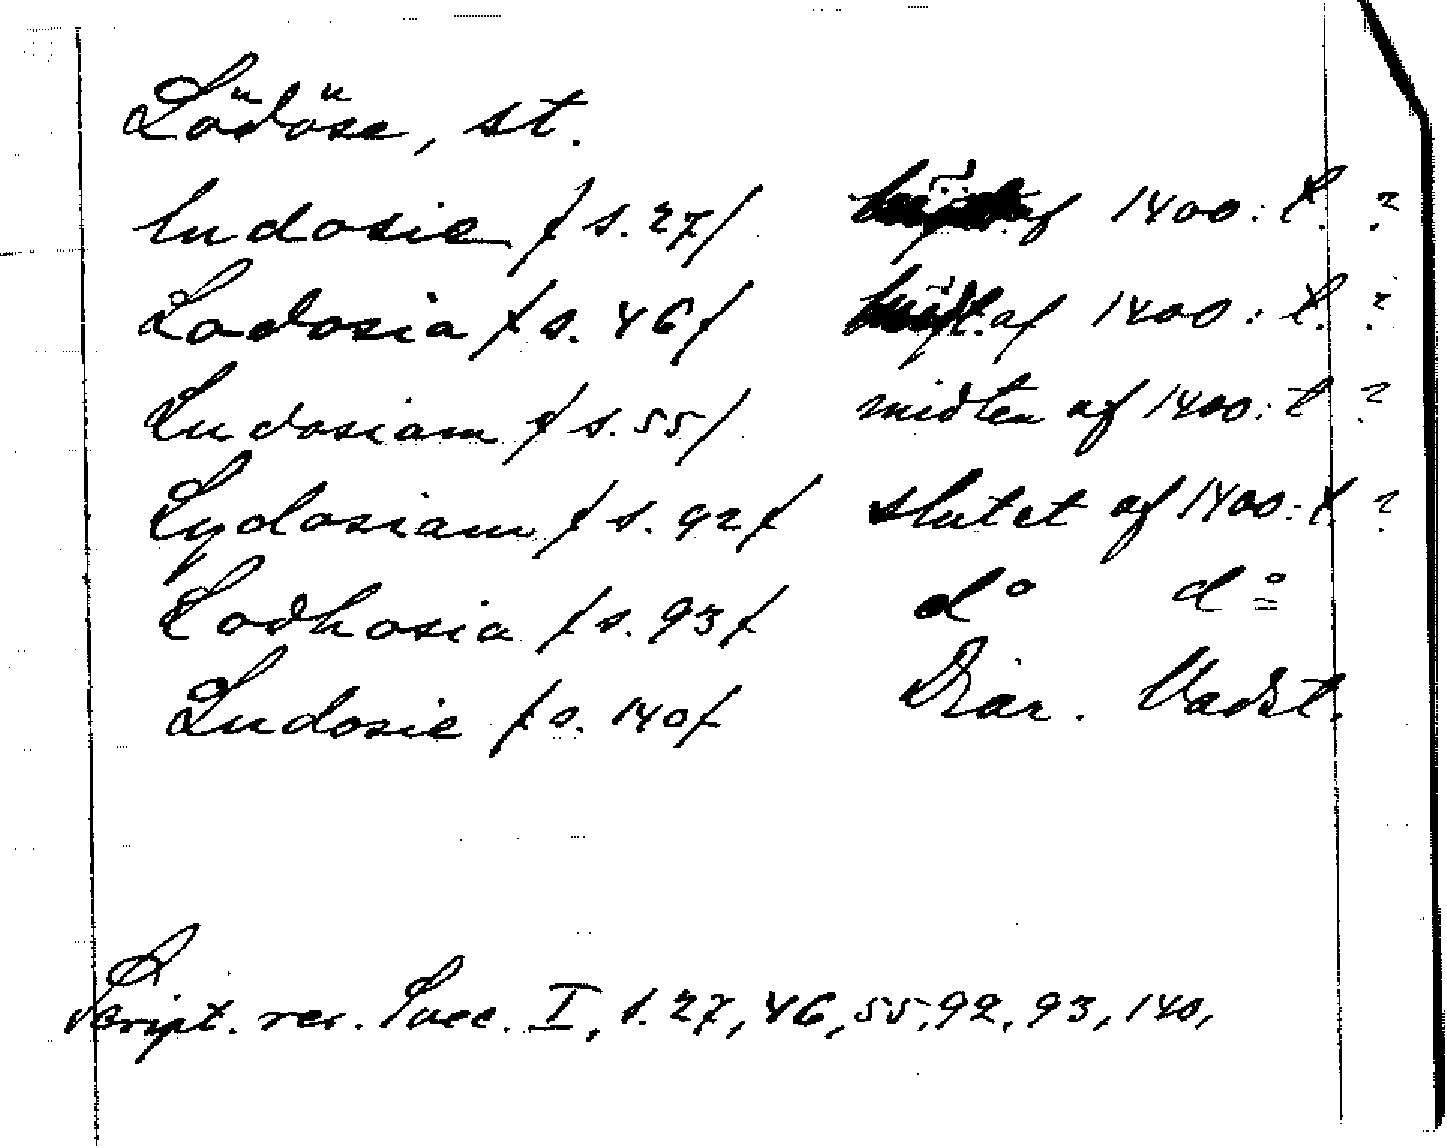 Lödöse, st.
ludosie / s. 27/ af 1400:t. ?
Lodosia / s. 46/ af 1400:t. ?
Ludosiam / s. 55/ midten af 1400:t ?
Lydosiam / s. 92/ slutet af 1400:t ?
Lodhosia / s. 93/ do do
Ludosie / s. 140/ Diar. Vadst.
Script. rer. Svec. I, s. 27, 46, 55, 92, 93, 140,